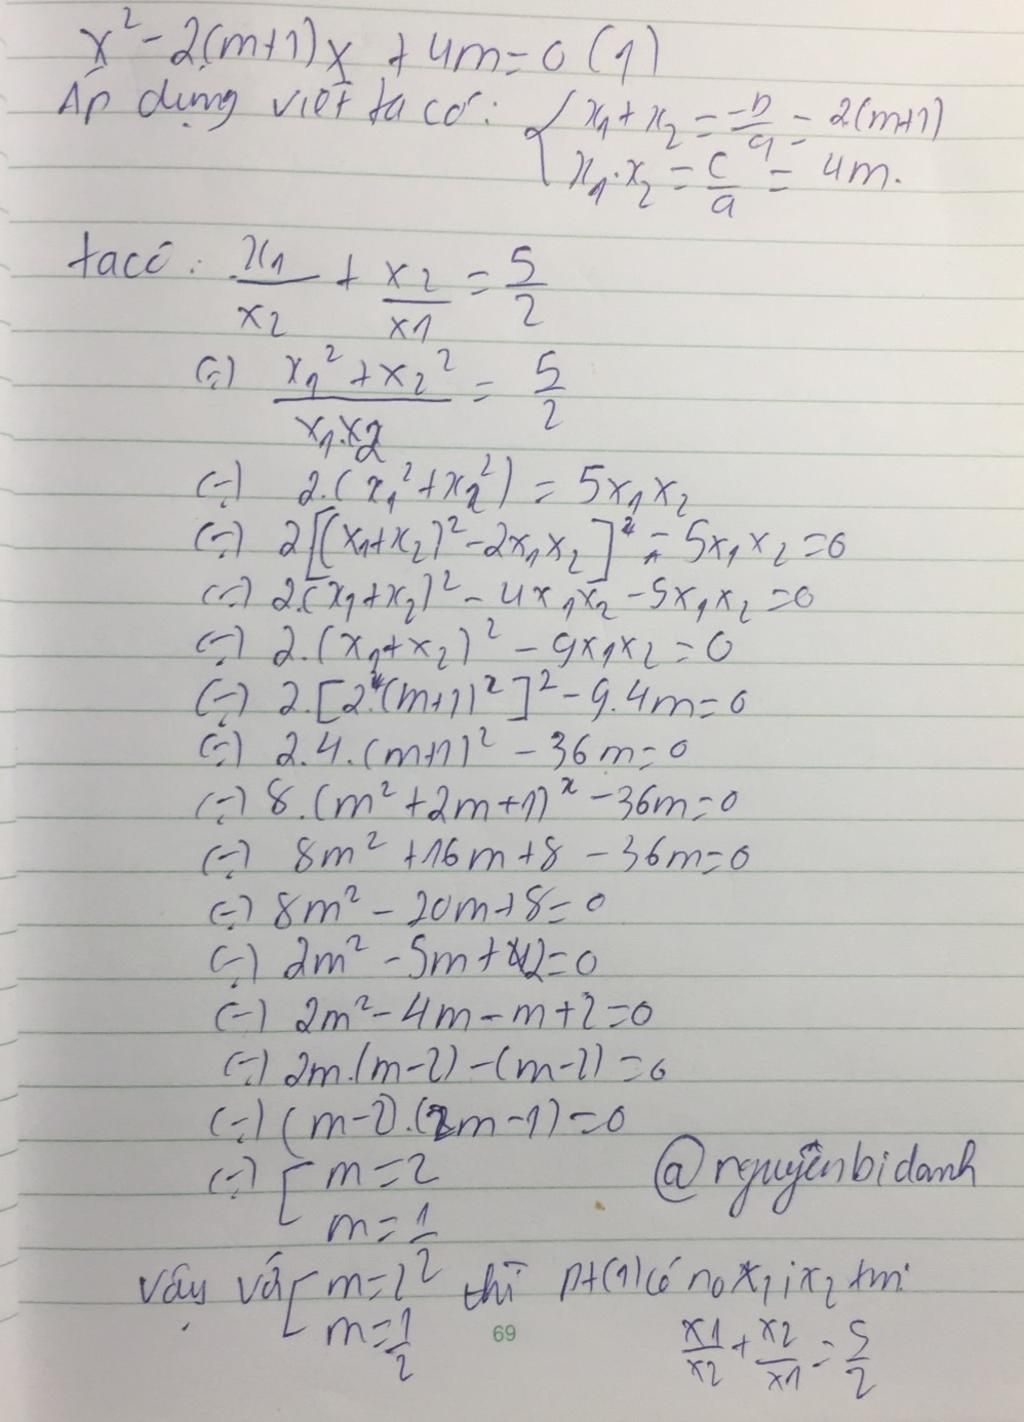 x² - 2(m+1)x + 4m = 0 (1)
Áp dụng viét ta có: { x₁ + x₂ = -b/a = 2(m+1)
x₁ . x₂ = c/a = 4m.
ta có : x₁/x₂ + x₂/x1 = 5/2
(=) (x₁² + x₂²)/(x₁.x2) = 5/2
(=) 2.(x₁² + x₂²) = 5x₁x₂
(=) 2[(x₁+x₂)² - 2x₁x₂] - 5x₁x₂ = 0
(=) 2.(x₁+x₂)² - 4x₁x₂ - 5x₁x₂ = 0
(=) 2.(x₁+x₂)² - 9x₁x₂ = 0
(=) 2.[2.(m+1)²]² - 9.4m = 0
(=) 2.4.(m+1)² - 36m = 0
(=) 8.(m² + 2m + 1) - 36m = 0
(=) 8m² + 16m + 8 - 36m = 0
(=) 8m² - 20m + 8 = 0
(=) 2m² - 5m + 2 = 0
(=) 2m² - 4m - m + 2 = 0
(=) 2m.(m-2) - (m-2) = 0
(=) (m-2).(2m-1) = 0
(=) [ m = 2
m = 1/2
@nguyễnbidanh
Vậy với [ m = 2 thì pt(1) có no x₁; x₂ tm:
m = 1/2
x1/x2 + x2/x1 = 5/2
69